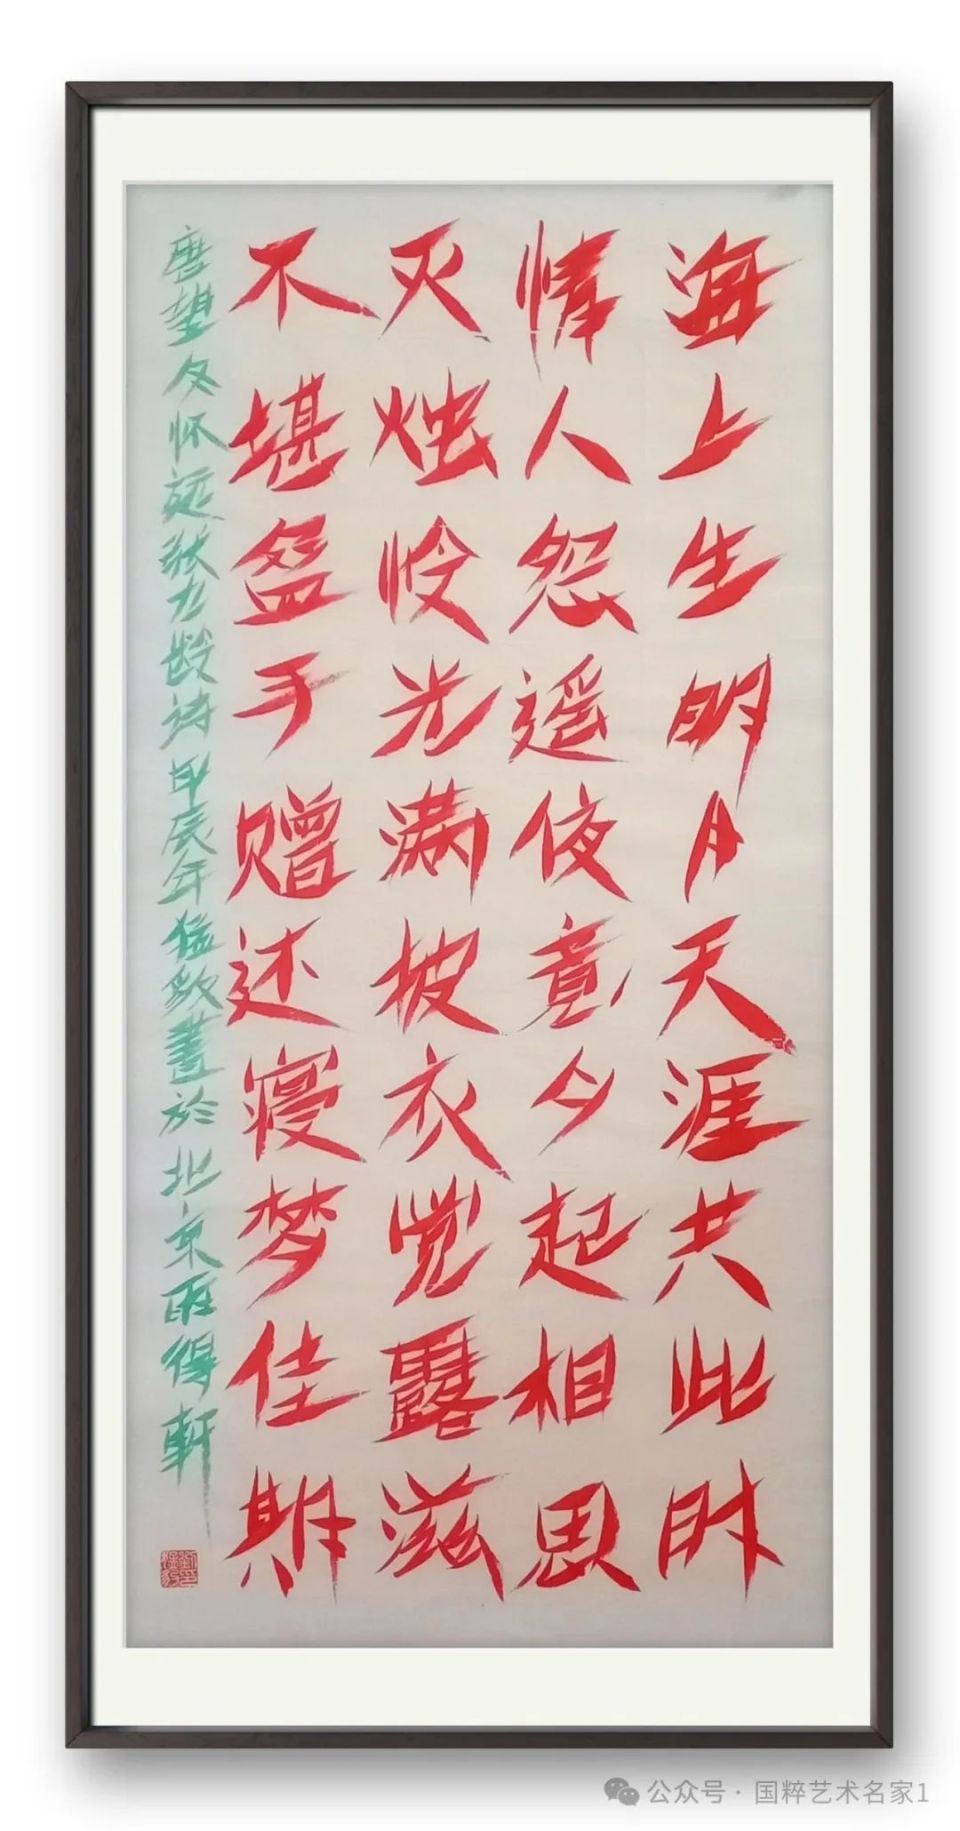 海上生明月天涯共此时
情人怨遥夜竟夕起相思
灭烛怜光满披衣觉露滋
不堪盈手赠还寝梦佳期
唐望月怀远张九龄诗甲辰年猛書於北京得軒
公众号·国粹艺术名家1